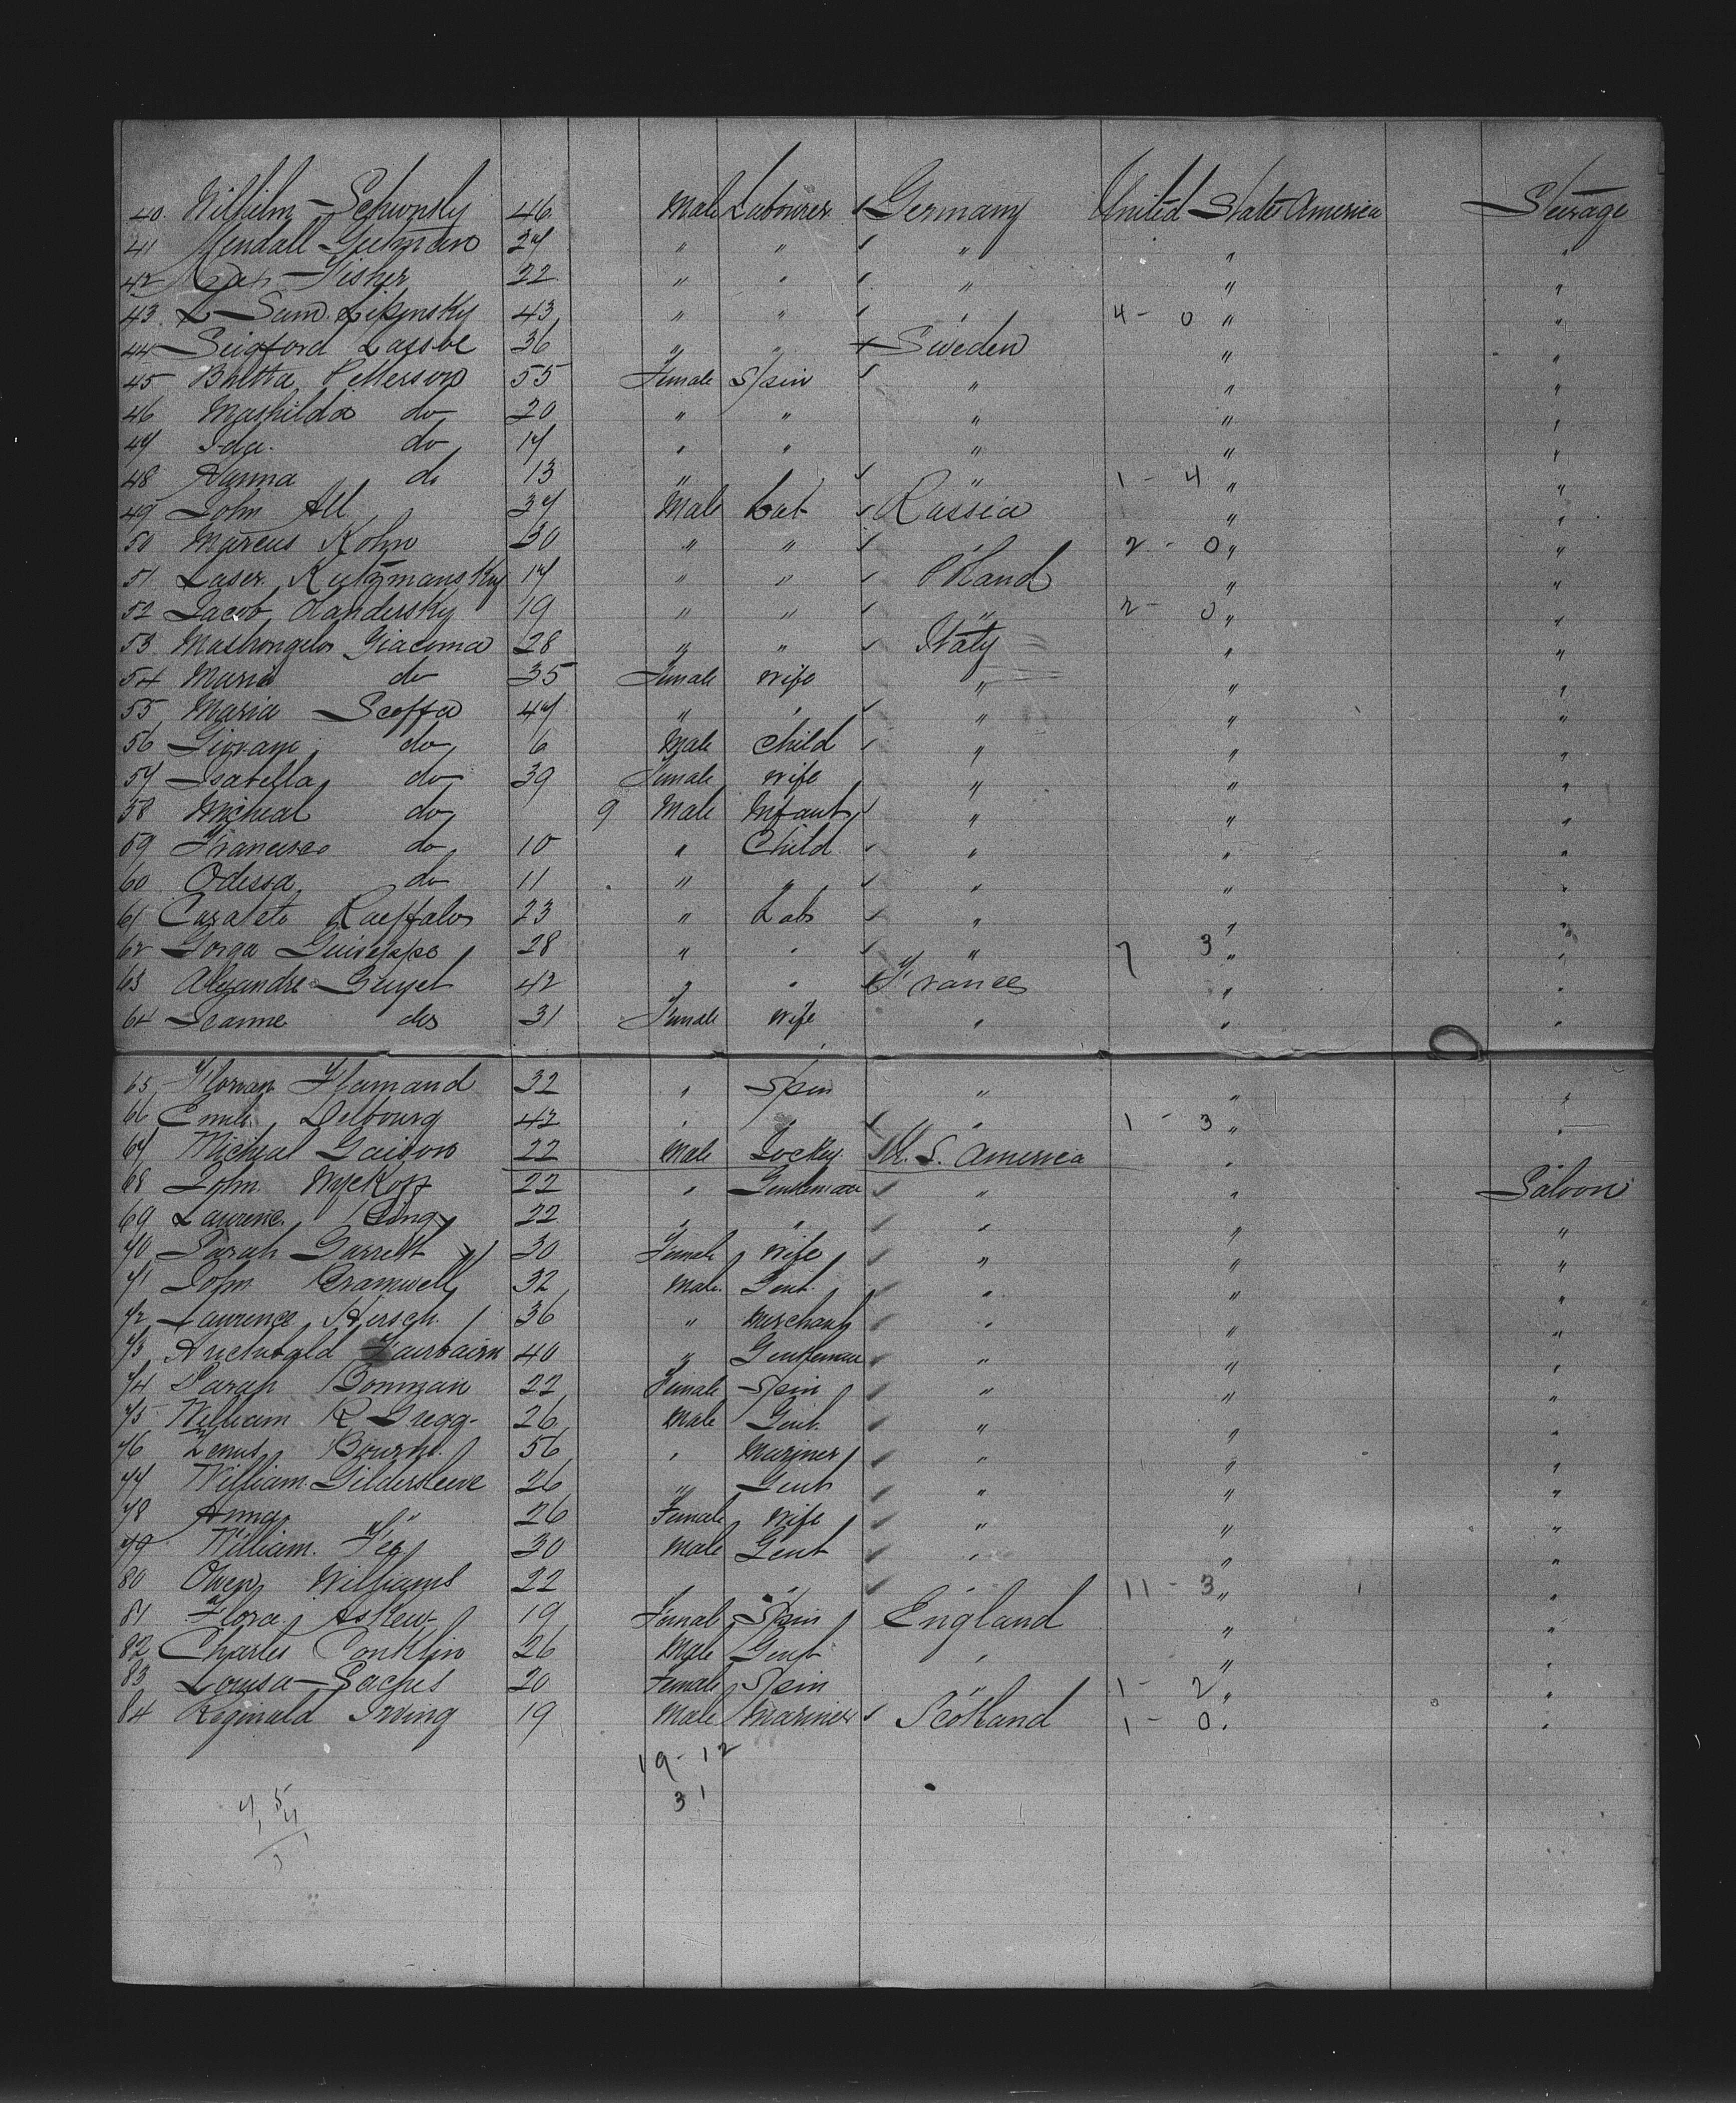 40 Wilhilm Schwnsky 46 Male Labourer Germany United States America Steerage
41 Mendall Gutman 27 " " " " "
42 Fisher 22 " " " " "
43 L Sam. Lipinsky 43 " " " 4 - 0 " "
44 Seigford 36 " " Sweden " "
45 Britta Petterson 55 Female Spin " " "
46 Mashilda do 20 " " " " "
47 Ida do 17 " " " " "
48 Hanna do 13 " " 1 - 4 " "
49 John All 37 Male Lab Russia " "
50 Marcus Kohn 30 " " " 2 - 0 " "
51 Laser Kutzmansky 17 " " Poland " "
52 Jacob Landersky 19 " " " 2 - 0 " "
53 Mashongelo Giacoma 28 " " Italy " "
54 Maria do 35 Female Wife " " "
55 Maria Scoffa 47 " " " " "
56 Giovani do 6 Male Child " " "
57 Isabella do 39 Female Wife " " "
58 Micheal do 9 Male Infant " " "
59 Francisco do 10 " Child " " "
60 Odessa do 11 " " " " "
61 Raeffalo 23 " Lab " " "
62 Gorga Guiseppe 28 " " " 7 3 " "
63 Alexandre Guyet 42 " " France " "
64 Jeanne do 31 Female Wife " " "
65 Florian Flamand 32 " Spin " " "
66 Emile Delbourg 42 " " " 1 - 3 " "
67 Micheal Gaison 22 Male Jockey U. S. America "
68 John Wyckoff 22 " Gentleman " " Saloon
69 Laurence King 22 " " " " "
70 Sarah Garrett 30 Female Wife " " "
71 John Bramwell 32 Male Gent. " " "
72 Laurence Hirsch 36 " Merchant " " "
73 Archibald Fairbairn 40 " Gentleman " " "
74 Sarah Bowman 22 Female Spin " " "
75 William R Gregg 26 Male Gent. " " "
76 Zenus Bourne 56 " Mariner " " "
77 William Gildersleeve 26 " Gent " " "
78 Anna " 26 Female Wife " " "
79 William 30 Male Gent " " "
80 Owen Williams 22 " " " 11 - 3 " "
81 Flora Askew 19 Female Spin England " "
82 Charles Conklin 26 Male Gent " " "
83 Louisa Saches 20 Female Spin " 1 - 2 " "
84 Reginald Irving 19 Male Mariner Scotland 1 - 0 " "
19 - 12
31